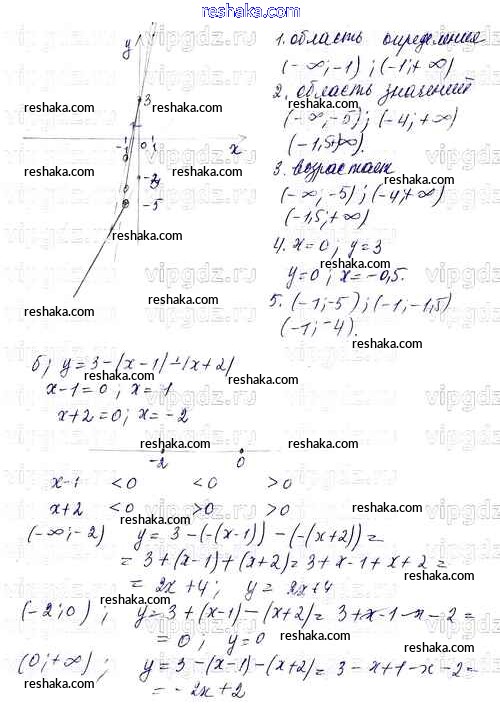 reshaka.com
y
3
-1 0 1 x
-2
-3
-5
1. область определения
(-∞; -1) ; (-1; +∞)
2. область значений
(-∞; -5); (-4; +∞)
(-1,5; +∞).
3. возрастает
(-∞; -5); (-4; +∞)
(-1,5; +∞)
4. x=0; y=3
y=0; x=-0,5.
5. (-1; -5); (-1; -1,5)
(-1; -4).
б) y=3-|x-1|-|x+2|
x-1=0; x=1
x+2=0; x=-2
-2 0
x-1 <0 <0 >0
x+2 <0 >0 >0
(-∞; -2) y=3-(-(x-1))-(-(x+2))=
=3+(x-1)+(x+2)=3+x-1+x+2=
=2x+4; y=2x+4
(-2; 0); y=3+(x-1)-(x+2)=3+x-1-x-2=
=0; y=0
(0; +∞); y=3-(x-1)-(x+2)=3-x+1-x-2=
=-2x+2